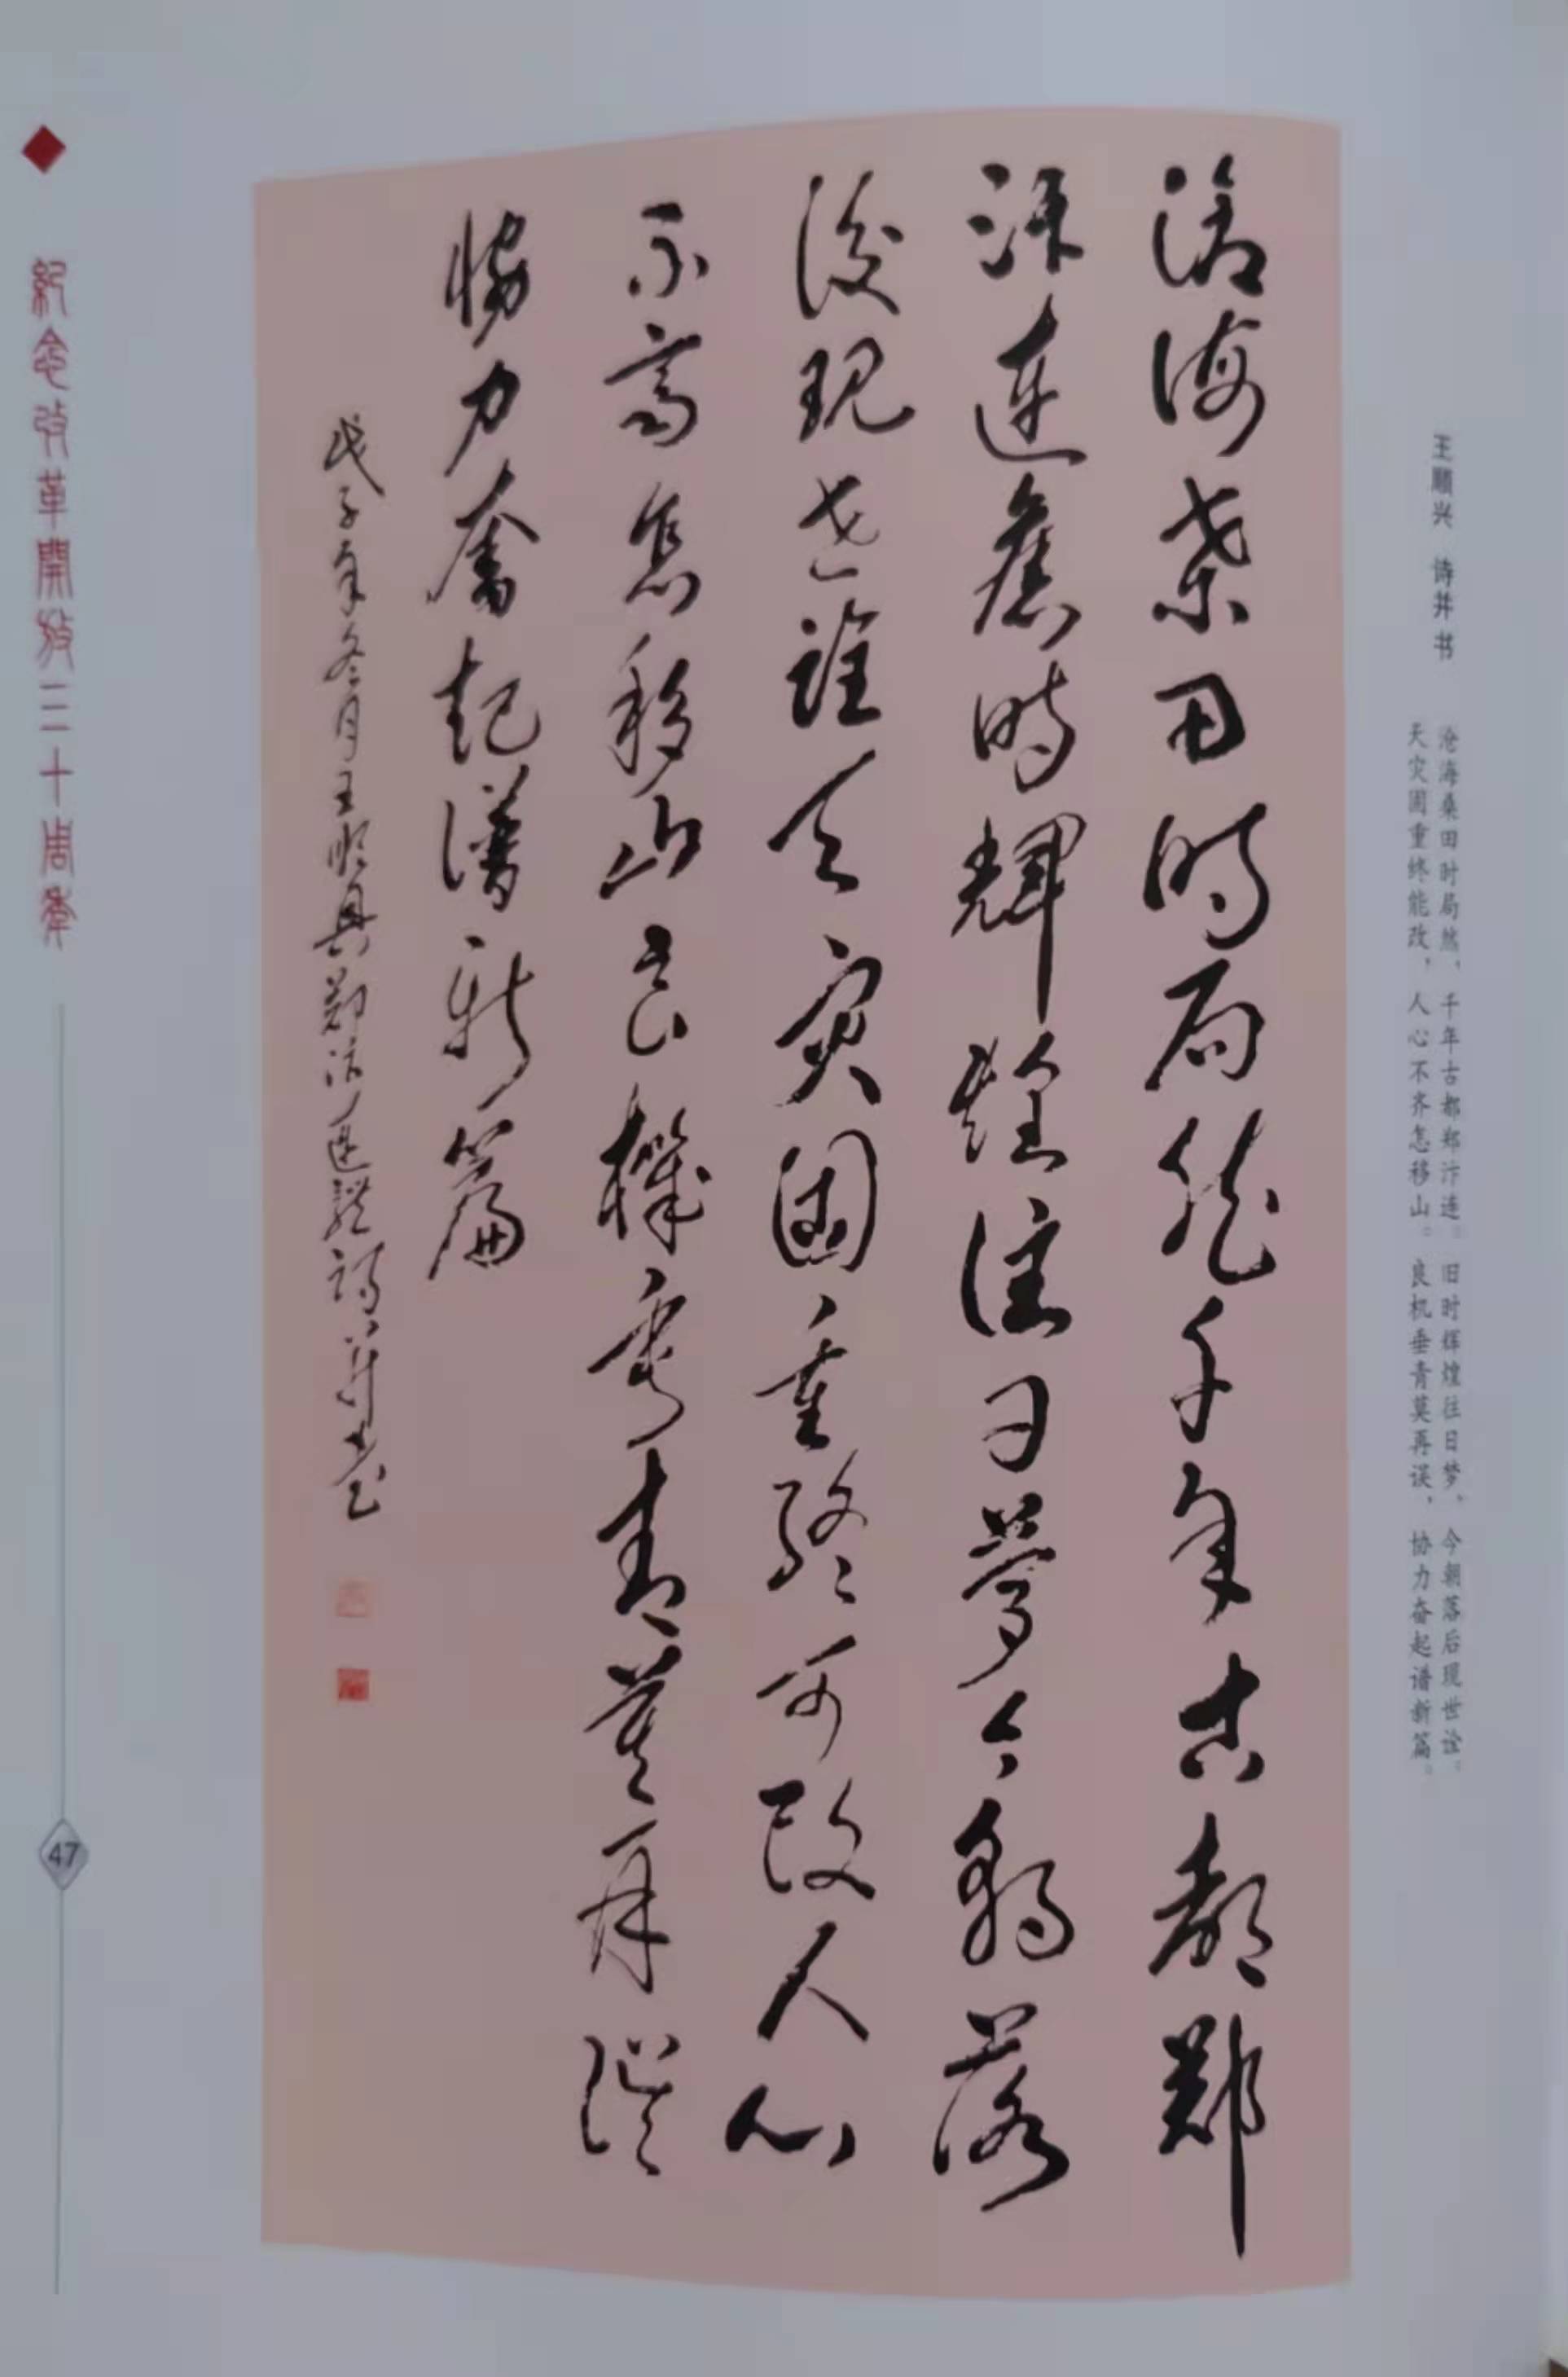 王顺兴 诗并书
沧海桑田时局然，千年古都郑汴连。旧时辉煌往日梦、今朝落后现世诠。
天灾固重终能改，人心不齐怎移山。良机垂青莫再误，协力奋起谱新篇。
滄海桑田時局然千年古都鄭
汴連舊時輝煌往日夢今朝落
後現世詮天災固重終可改人心
不齊怎移山良機垂青莫再誤
協力奮起譜新篇
戊子年冬月王順興鄭汴體詩并書
紀念改革開放三十周年
47